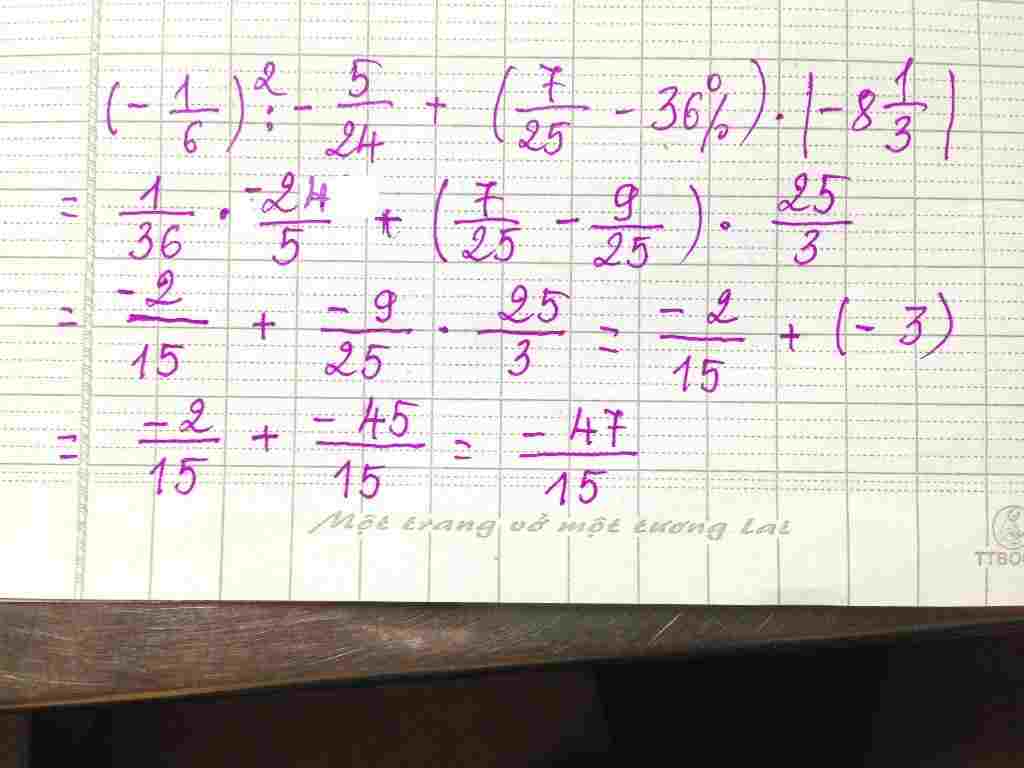 (-1/6)² : -5/24 + (7/25 - 36%) . |-8 1/3|
= 1/36 . -24/5 + (7/25 - 9/25) . 25/3
= -2/15 + -9/25 . 25/3 = -2/15 + (-3)
= -2/15 + -45/15 = -47/15
Một trang vở một tương lai